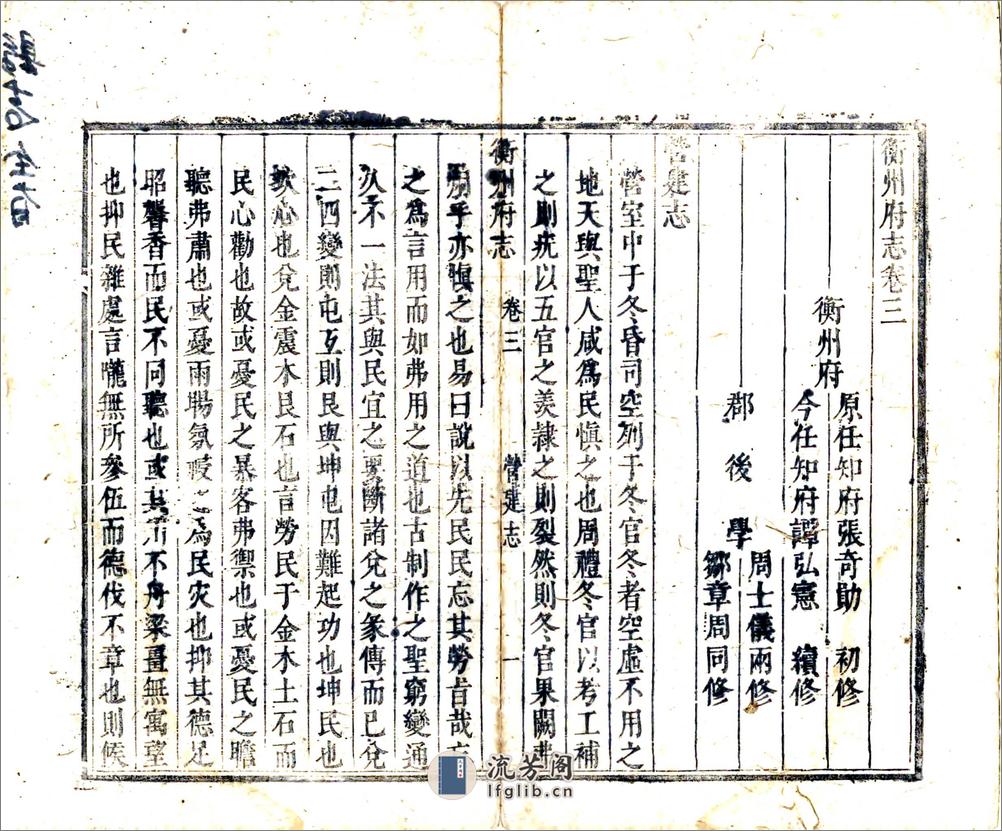 衡州府志卷三
衡州府
原任知府張奇勛 初修
今任知府譚弘憲 續修
郡後學
周士儀兩修
鄒章周同修
營建志
營室中于冬昏司空列于冬官冬者空虛不用之
地天與聖人咸爲民愼之也周禮冬官以考工補
之則疣以五官之羨隸之則裂然則冬官果闕
衡州府志 卷三 營建志 一
乎亦愼之也易曰說以先民民忘其勞旨哉
之爲言用而如弗用之道也古制作之聖窮變通
久不一法其與民宜之要斷諸兌之象傳而已兌
二四變則屯互則艮與坤屯因難起功也坤民也
坎心也兌金震木艮石也言勞民于金木土石而
民心勸也故或憂民之暴客弗禦也或憂民之瞻
聽弗肅也或憂雨暘氛祲之爲民灾也抑其德足
昭馨香而民不同聽也或其不舟梁畺無寓望
也抑民雜處言嚨無所參伍而德伐不章也則候
流芳阁
lfglib.cn